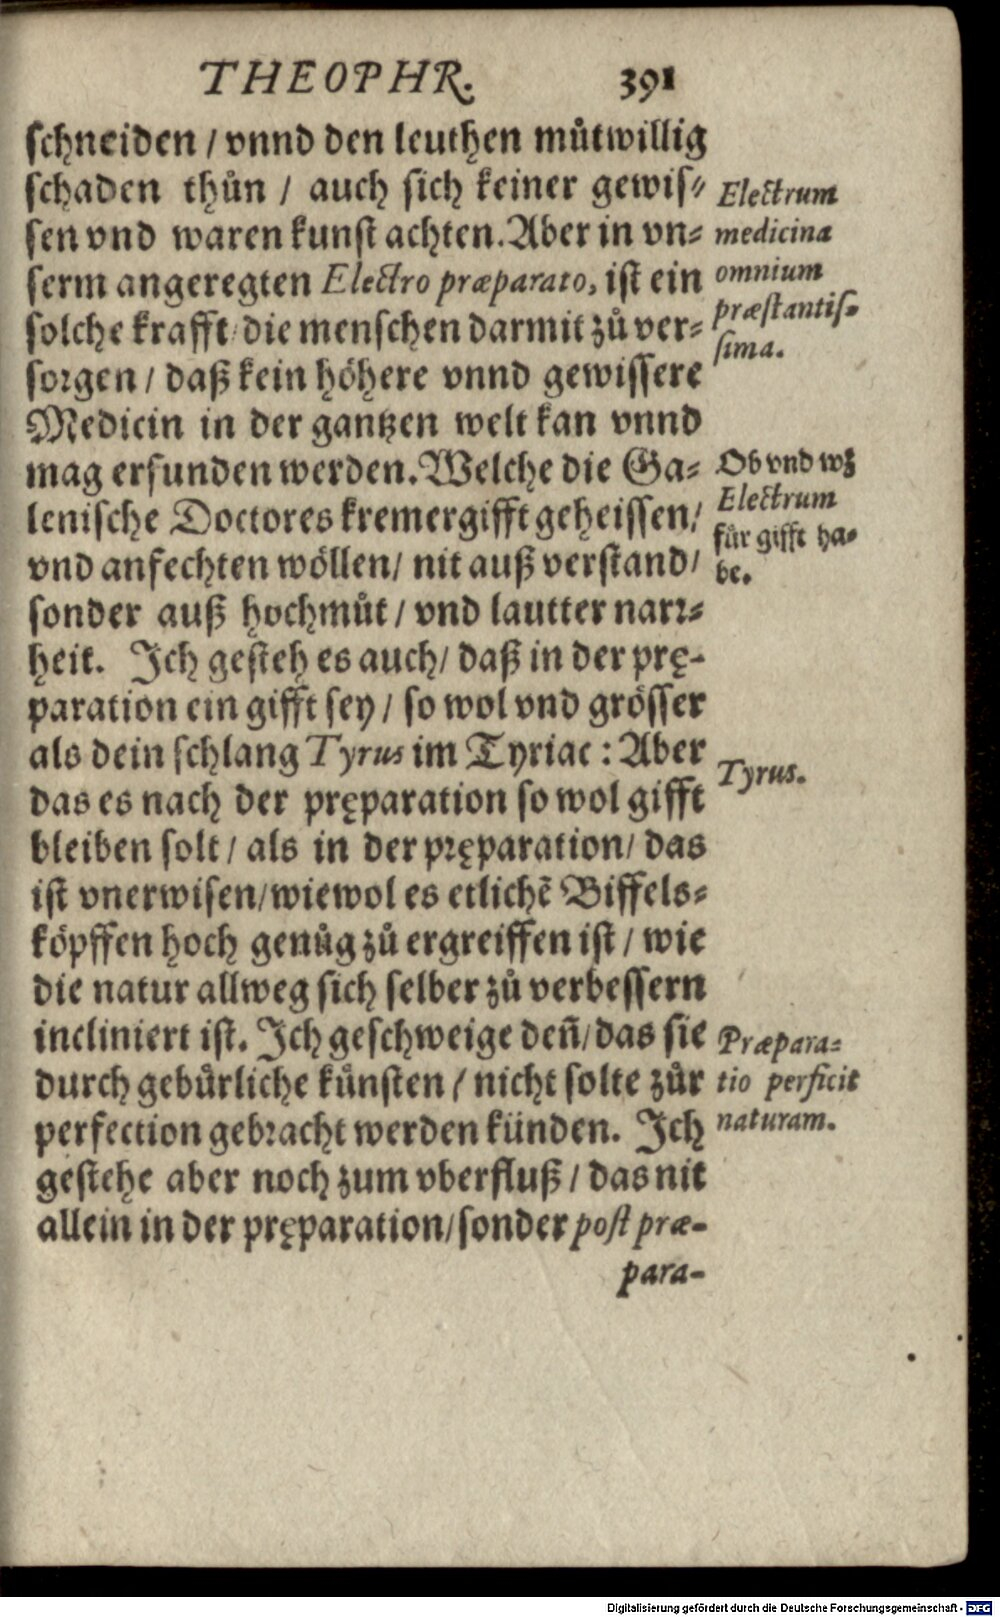 THEOPHR. 391
schneiden / vnnd den leuthen můtwillig
schaden thůn / auch sich keiner gewis⸗
sen vnd waren kunst achten. Aber in vn⸗
serm angeregten Electro præparato, ist ein
solche krafft / die menschen darmit zů ver⸗
sorgen / daß kein höhere vnnd gewissere
Medicin in der gantzen welt kan vnnd
mag erfunden werden. Welche die Ga⸗
lenische Doctores kremergifft geheissen /
vnd anfechten wöllen / nit auß verstand /
sonder auß hochmůt / vnd lautter narr⸗
heit. Ich gesteh es auch / daß in der prę-
paration ein gifft sey / so wol vnd grösser
als dein schlang Tyrus im Tyriac : Aber
das es nach der pręparation so wol gifft
bleiben solt / als in der pręparation / das
ist vnerwisen / wiewol es etlichẽ Biffels⸗
köpffen hoch genůg zů ergreiffen ist / wie
die natur allweg sich selber zů verbessern
incliniert ist. Ich geschweige deñ / das sie
durch gebürliche künsten / nicht solte zůr
perfection gebracht werden künden. Ich
gestehe aber noch zum vberfluß / das nit
allein in der pręparation / sonder post præ-
para-
Electrum
medicina
omnium
præstantis⸗
sima.
Ob vnd wz
Electrum
für gifft ha⸗
be.
Tyrus.
Præpara⸗
tio perficit
naturam.
Digitalisierung gefördert durch die Deutsche Forschungsgemeinschaft - DFG